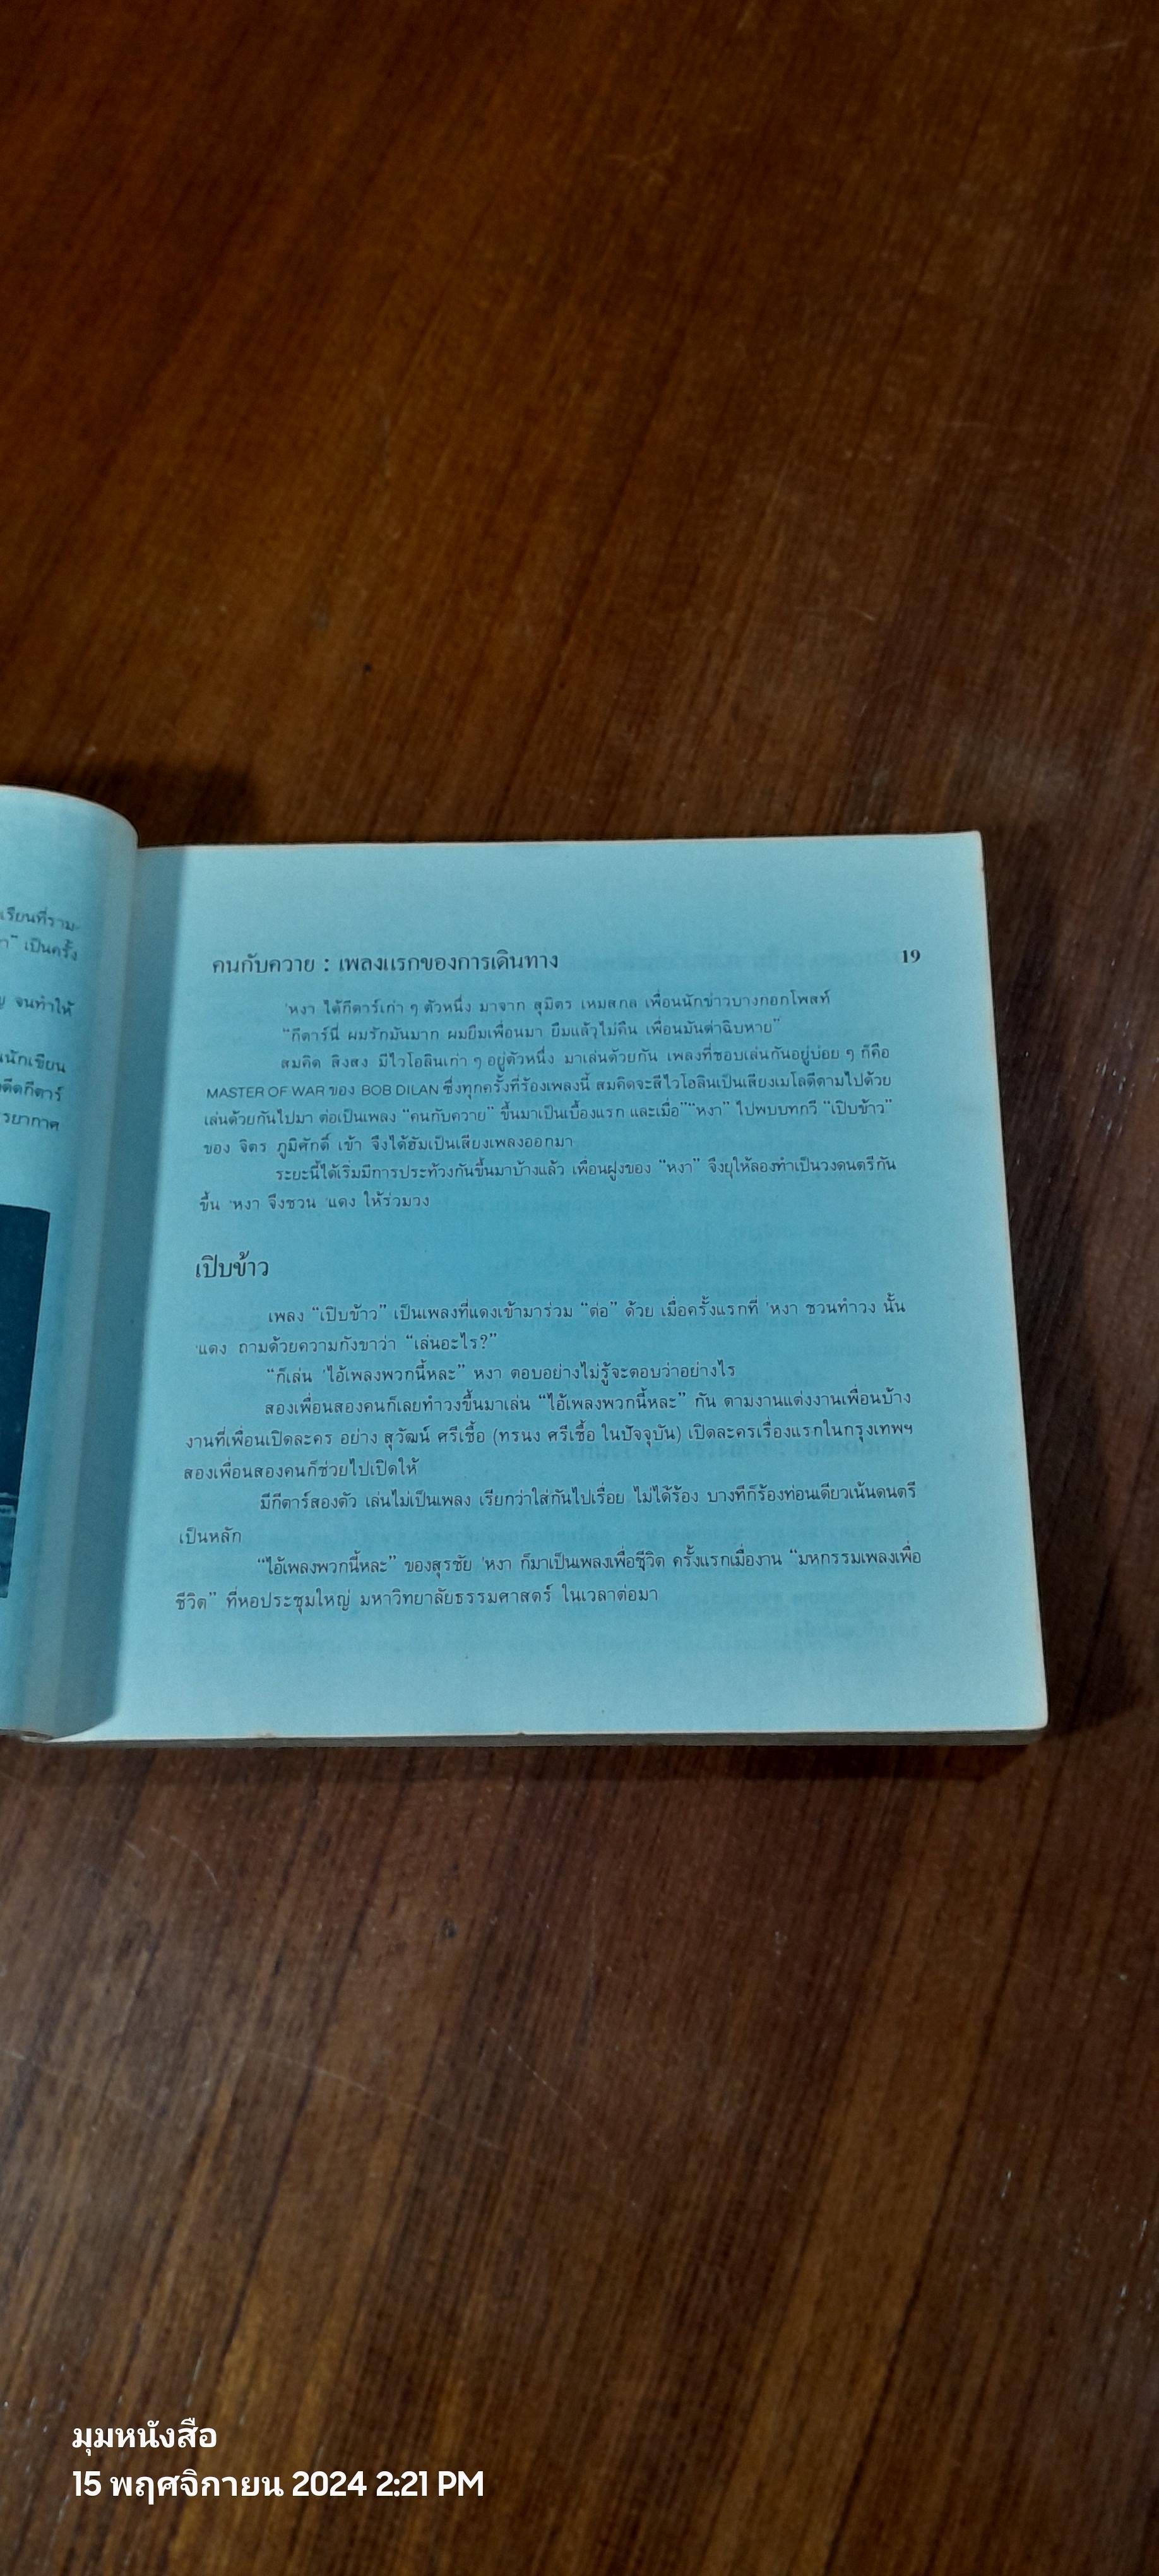 เรียนที่ราม-
า” เป็นครั้ง
ญ จนทำให้
นนักเขียน
ดีดกีตาร์
รยากาศ
คนกับควาย : เพลงแรกของการเดินทาง 19
'หงา ได้กีตาร์เก่า ๆ ตัวหนึ่ง มาจาก สุมิตร เหมสกล เพื่อนนักข่าวบางกอกโพสท์
“กีตาร์นี่ ผมรักมันมาก ผมยืมเพื่อนมา ยืมแล้วไม่คืน เพื่อนมันด่าฉิบหาย”
สมคิด สิงสง มีไวโอลินเก่า ๆ อยู่ตัวหนึ่ง มาเล่นด้วยกัน เพลงที่ชอบเล่นกันอยู่บ่อย ๆ ก็คือ
MASTER OF WAR ของ BOB DILAN ซึ่งทุกครั้งที่ร้องเพลงนี้ สมคิดจะสีไวโอลินเป็นเสียงเมโลดีตามไปด้วย
เล่นด้วยกันไปมา ต่อเป็นเพลง “คนกับควาย” ขึ้นมาเป็นเบื้องแรก และเมื่อ”“หงา” ไปพบบทกวี “เปิบข้าว”
ของ จิตร ภูมิศักดิ์ เข้า จึงได้ฮัมเป็นเสียงเพลงออกมา
ระยะนี้ได้เริ่มมีการประท้วงกันขึ้นมาบ้างแล้ว เพื่อนฝูงของ “หงา” จึงยุให้ลองทำเป็นวงดนตรีกัน
ขึ้น 'หงา จึงชวน 'แดง ให้ร่วมวง
เปิบข้าว
เพลง “เปิบข้าว” เป็นเพลงที่แดงเข้ามาร่วม “ต่อ” ด้วย เมื่อครั้งแรกที่ 'หงา ชวนทำวง นั้น
'แดง ถามด้วยความกังขาว่า “เล่นอะไร?”
“ก็เล่น 'ไอ้เพลงพวกนี้หละ” หงา ตอบอย่างไม่รู้จะตอบว่าอย่างไร
สองเพื่อนสองคนก็เลยทำวงขึ้นมาเล่น “ไอ้เพลงพวกนี้หละ” กัน ตามงานแต่งงานเพื่อนบ้าง
งานที่เพื่อนเปิดละคร อย่าง สุวัฒน์ ศรีเชื้อ (ทรนง ศรีเชื้อ ในปัจจุบัน) เปิดละครเรื่องแรกในกรุงเทพฯ
สองเพื่อนสองคนก็ช่วยไปเปิดให้
มีกีตาร์สองตัว เล่นไม่เป็นเพลง เรียกว่าใส่กันไปเรื่อย ไม่ได้ร้อง บางทีก็ร้องท่อนเดียวเน้นดนตรี
เป็นหลัก
“ไอ้เพลงพวกนี้หละ” ของสุรชัย 'หงา ก็มาเป็นเพลงเพื่อชีวิต ครั้งแรกเมื่องาน “มหกรรมเพลงเพื่อ
ชีวิต” ที่หอประชุมใหญ่ มหาวิทยาลัยธรรมศาสตร์ ในเวลาต่อมา
มุมหนังสือ
15 พฤศจิกายน 2024 2:21 PM